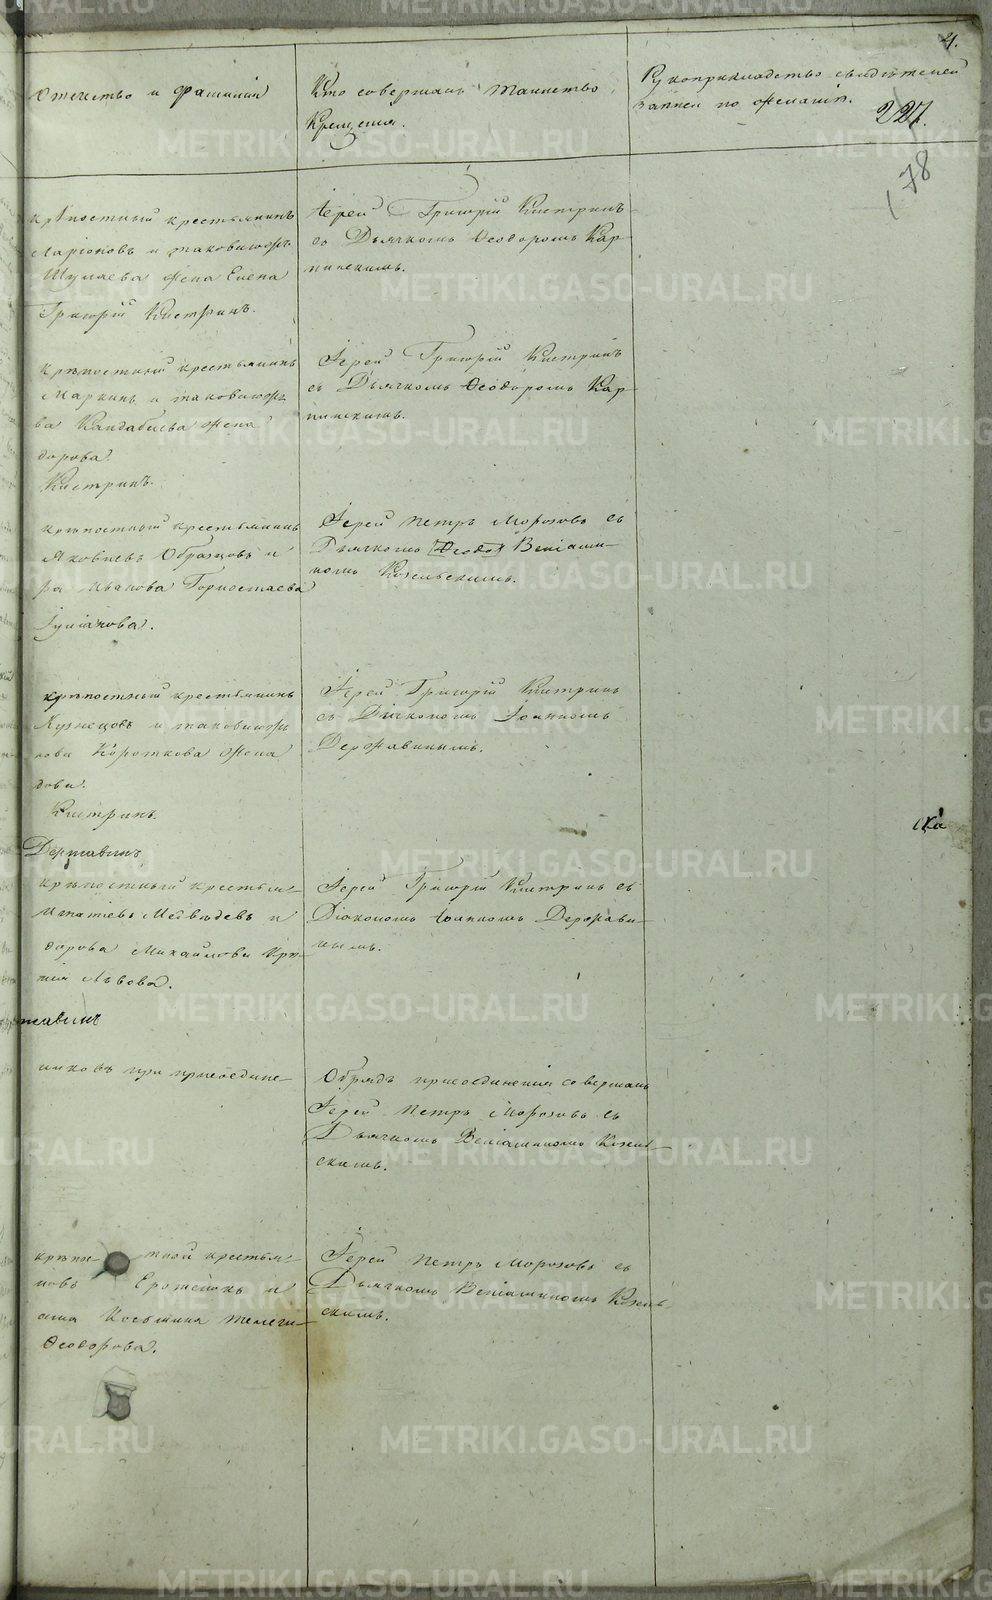 21.
Отечество и фамилия
Кто совершалъ таинство
Крещенія.
Рукоприкладство свидѣтелей
записи по желанію.
227.
178
крѣпостный крестьянинъ
Ларіоновъ и таковаяжъ
Шуляева жена Елена
Григорій Кистринъ.
Іерей Григорій Кистринъ
съ Дьячкомъ Ѳеодоромъ Кар-
пинскимъ.
крѣпостный крестьянинъ
Маркинъ и таковаяжъ
ва Кандабаева жена
дорова.
Кистринъ.
Іерей Григорій Кистринъ
съ Дьячкомъ Ѳеодоромъ Кар-
пинскимъ.
крѣпостный крестьянинъ
Яковлевъ Образцовъ и
ра Иванова Горностаева
Іулианова.
Іерей Петръ Морозовъ съ
Дьячкомъ Ѳеодо Веніами-
номъ Козельскимъ.
крѣпостный крестьянинъ
Кузнецовъ и таковаяжъ
Короткова жена
дова.
Кистринъ.
Державинъ
Іерей Григорій Кистринъ
съ Діакономъ Іоанномъ
Державинымъ.
ска
крѣпостный крестья-
Игнатіевъ Медвѣдевъ и
дорова Михайлова Крѣ-
Львова.
жавинъ
Іерей Григорій Кистринъ съ
Діакономъ Іоанномъ Держави-
нымъ.
никовъ при присоедине-
Обрядъ присоединенія совершалъ
Іерей Петръ Морозовъ съ
Дьячкомъ Веніаминомъ Козель-
скимъ.
крѣпостной крестья-
новъ и
Косьмина Телеги-
Ѳеодорова.
Іерей Петръ Морозовъ съ
Дьячкомъ Веніаминомъ Козель-
скимъ.
METRIKI.GASO-URAL.RU